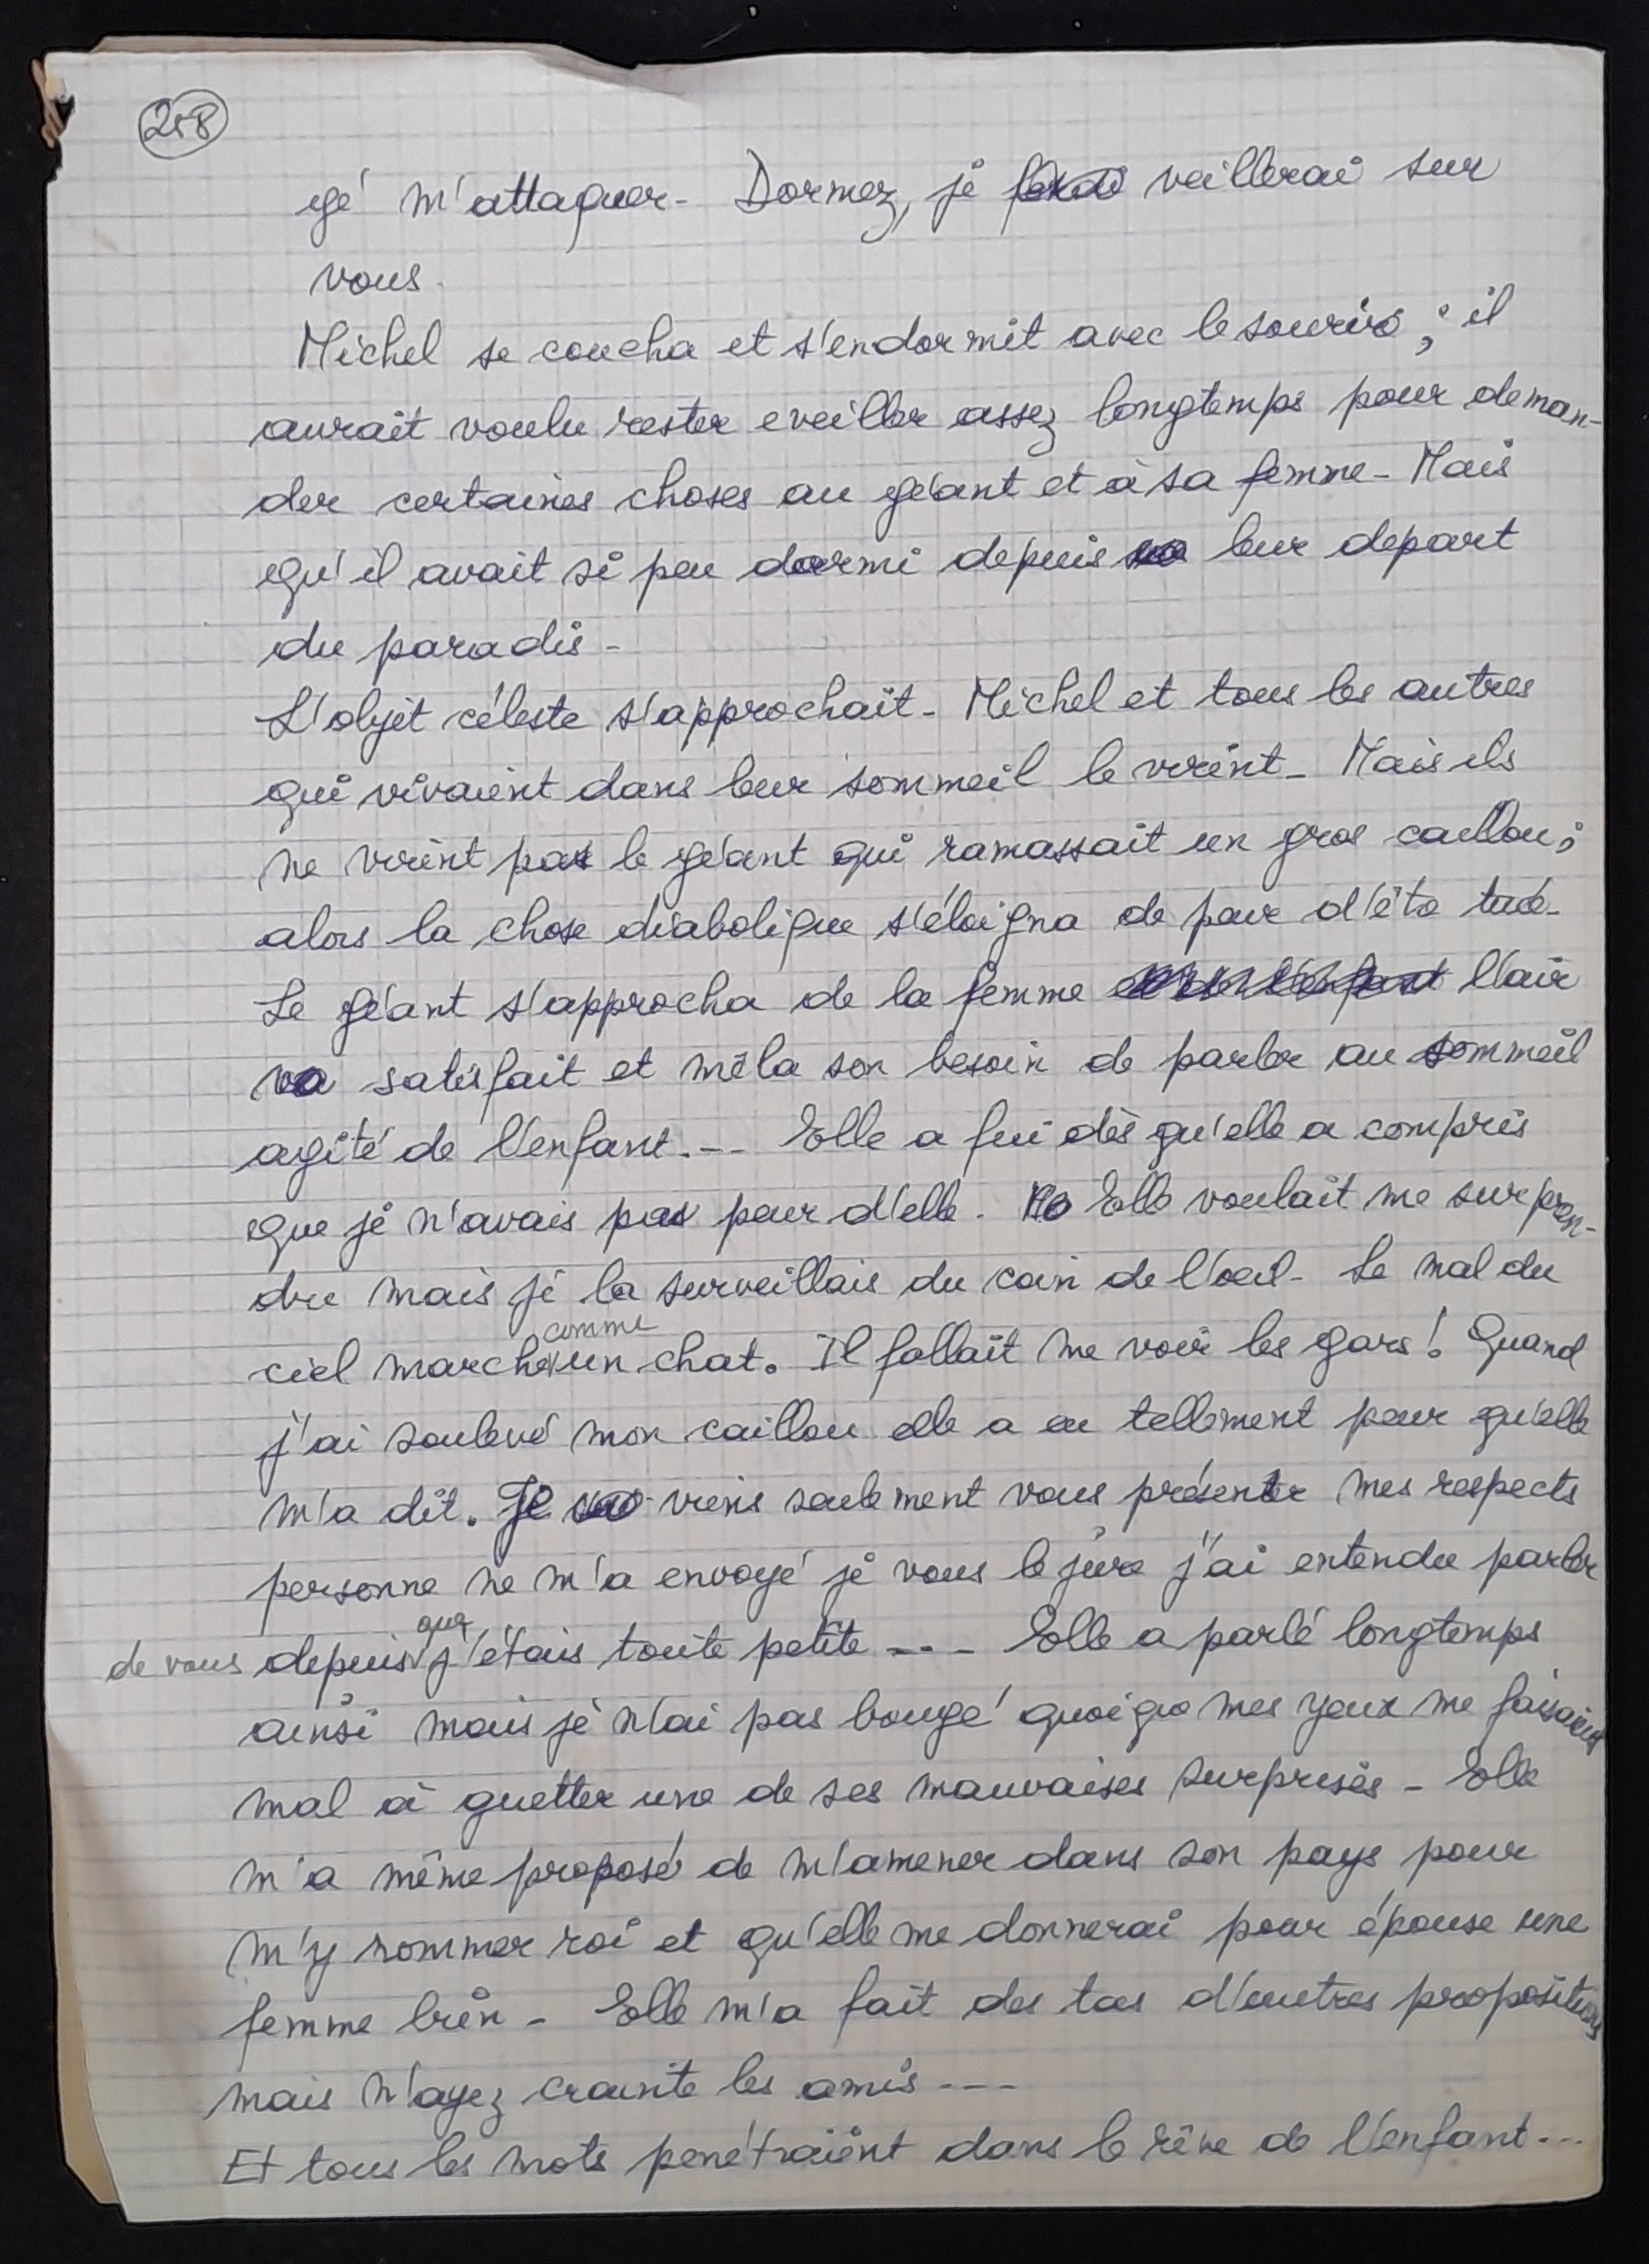 258
gé m'attaquer - Dormez, je veillerai sur
vous.
Michel se coucha et s'endormit avec le sourire ; il
aurait voulu rester eveiller assez longtemps pour deman-
der certaines choses au géant et à sa femme - Mais
qu'il avait si peu dormi depuis leur depart
du paradis -
L'objet céleste s'approchait - Michel et tous les autres
qui vivaient dans leur sommeil le virent - Mais ils
ne virent pas le géant qui ramassait un gros caillou ;
alors la chose diabolique s'éloigna de peur d'être tuée -
Le géant s'approcha de la femme l'air
satisfait et mêla son besoin de parler au sommeil
agité de l'enfant --- Elle a fui dès qu'elle a compris
que je n'avais pas peur d'elle. Elle voulait me surpren-
dre mais je la surveillais du coin de l'oeil - Le mal du
ciel marche comme un chat. Il fallait me voir les gars ! Quand
j'ai soulevé mon caillou elle a eu tellement peur qu'elle
m'a dit. Je viens seulement vous présenter mes respects
personne ne m'a envoyé je vous le jure j'ai entendu parler
de vous depuis que j'étais toute petite --- Elle a parlé longtemps
ainsi mais je n'ai pas bougé quoique mes yeux me faisaient
mal à guetter une de ses mauvaises surprises - Elle
m'a même proposé de m'amener dans son pays pour
m'y nommer roi et qu'elle me donnerai pour épouse une
femme - Elle m'a fait des tas d'autres propositions
mais n'ayez crainte les amis ---
Et tous les mots penétraient dans le rêve de l'enfant ---